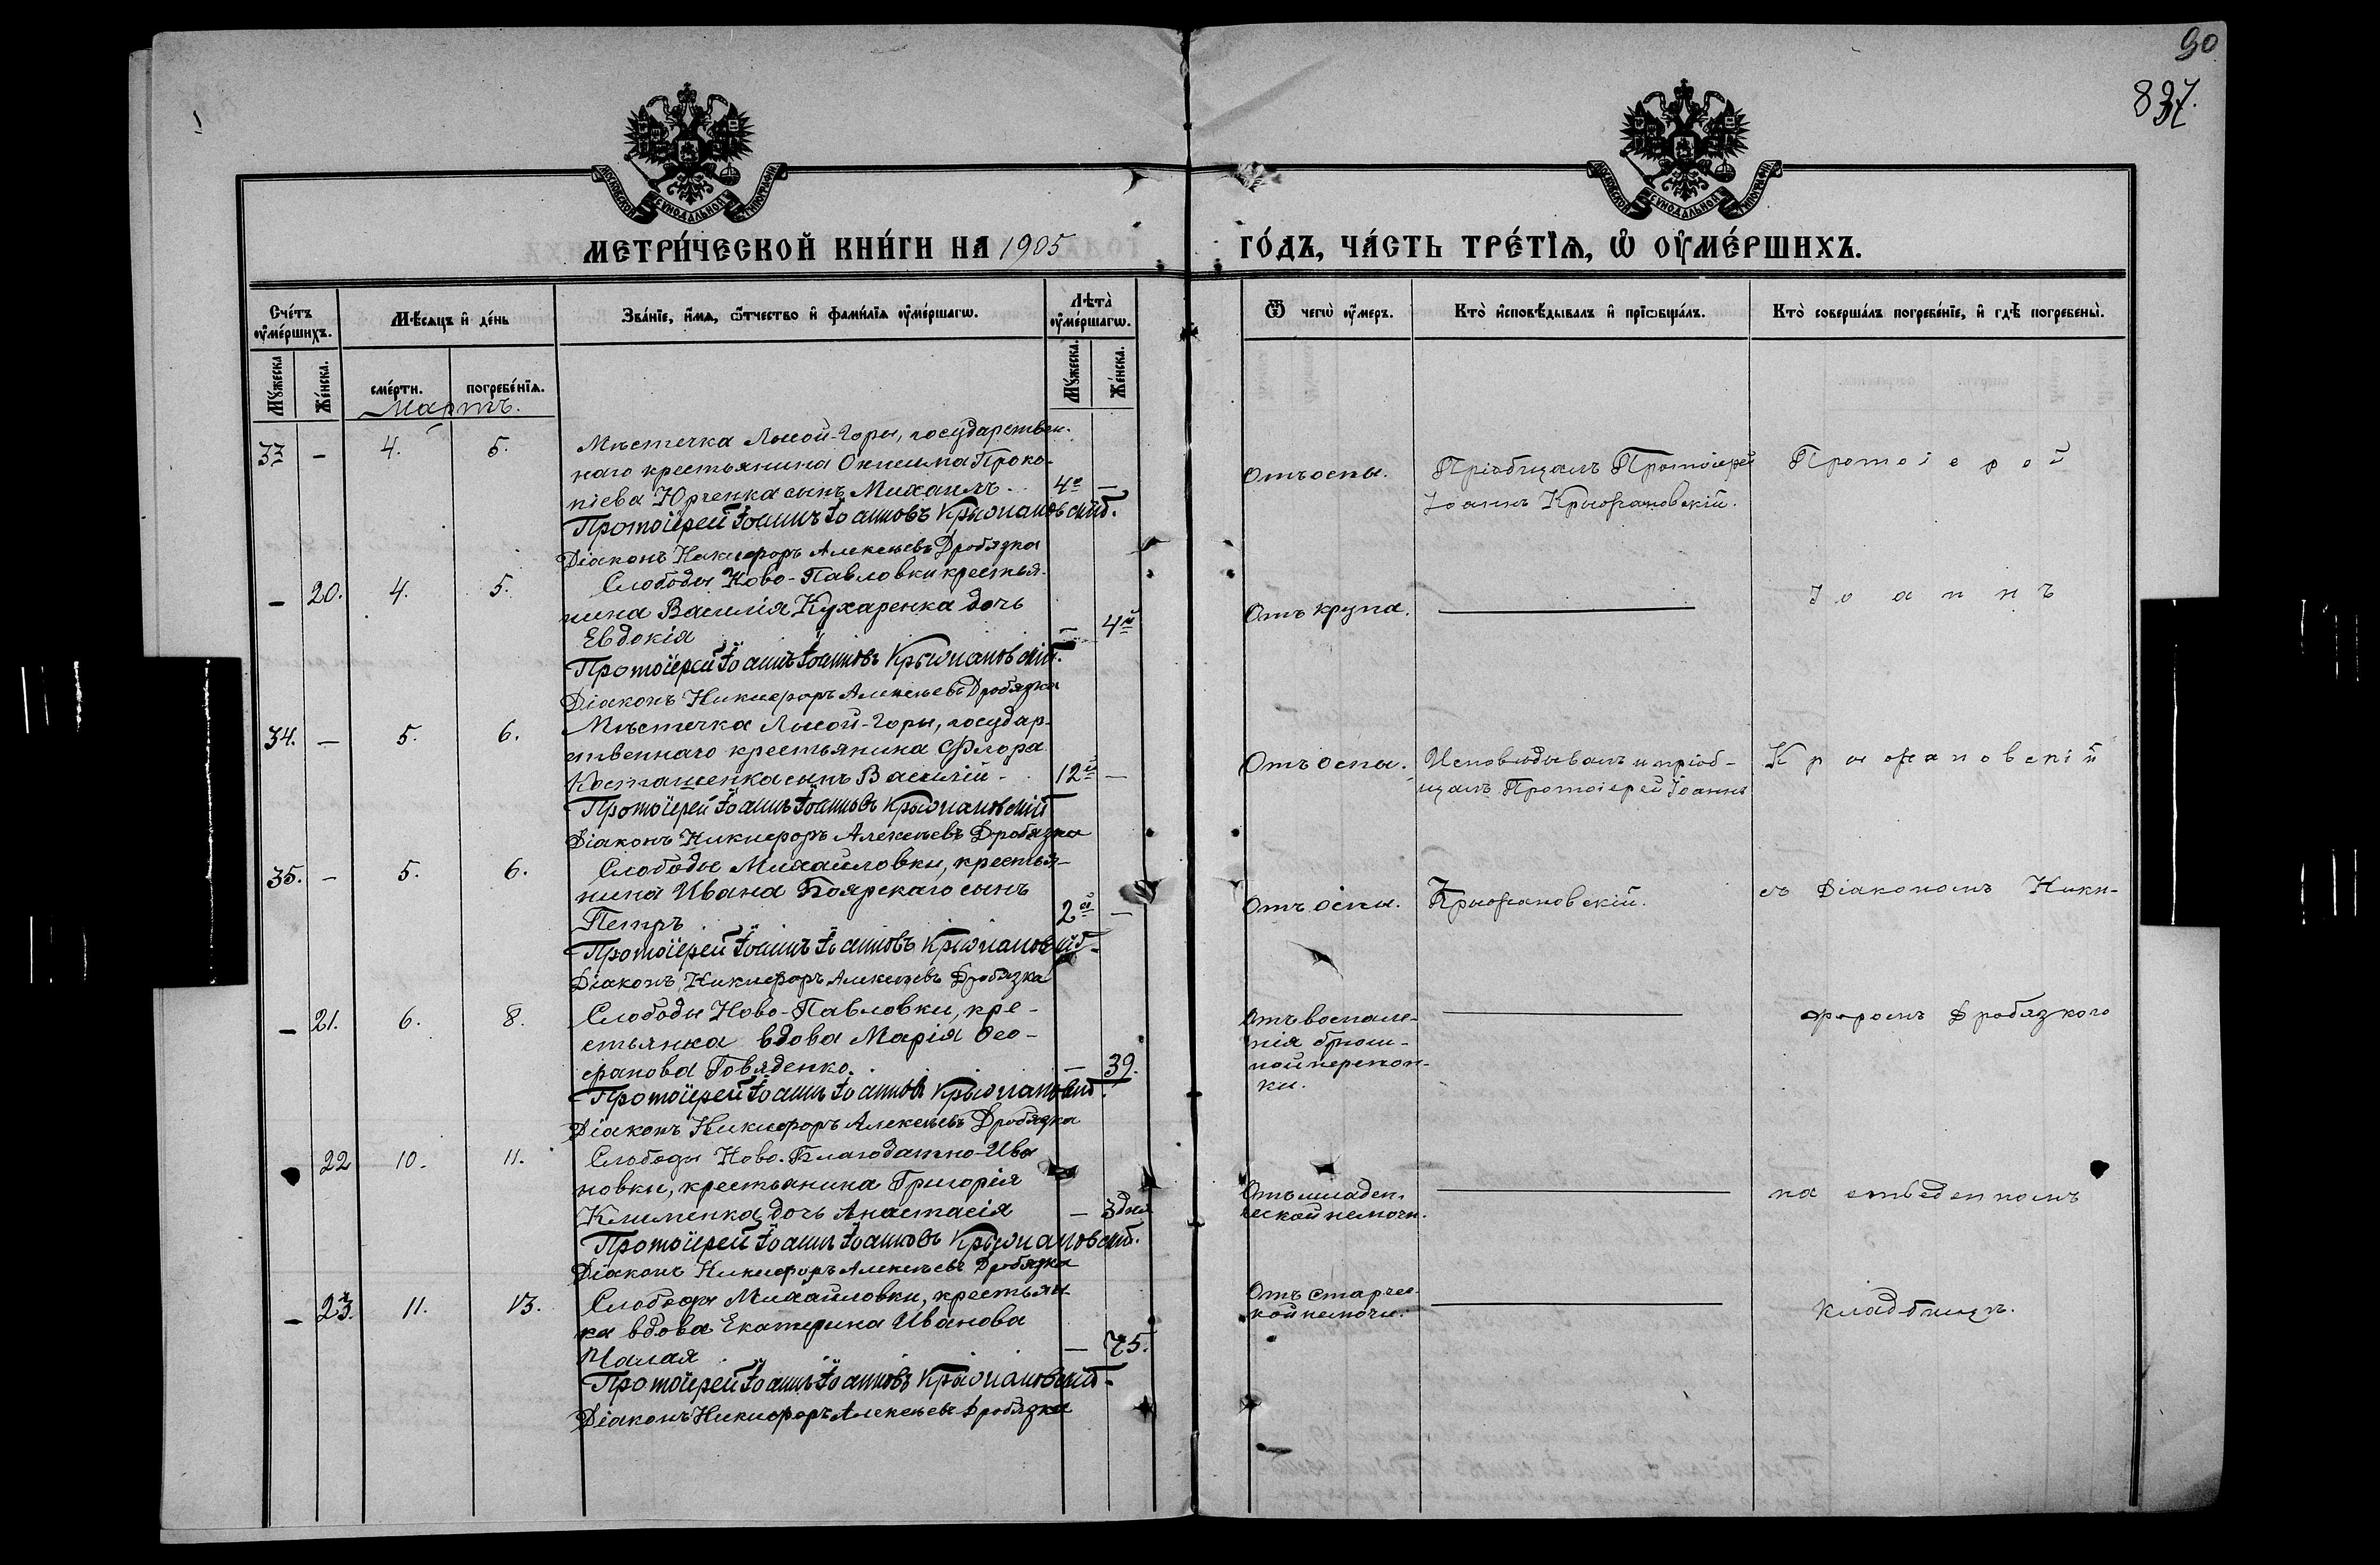 90
837.
МОСКОВСКОЙ СѴНОДАЛЬНОЙ ТИПОГРАФІИ
МОСКОВСКОЙ СѴНОДАЛЬНОЙ ТИПОГРАФІИ
МЕТРИ́ЧЕСКОЙ КНИ́ГИ НА 1905
ГО́ДЪ, ЧА́СТЬ ТРЕ́ТЇѦ, Ѽ ОУ҆МЕ́РШИХЪ.
Сче́тъ оу҆ме́ршихъ.
Мѣ́сяцъ и҆ де́нь
Зва́нїе, и҆́мя, ѻ҆́тчество и҆ фами́лїя оу҆ме́ршагѡ.
Лѣта̀ оу҆ме́ршагѡ.
Мꙋ́жеска
Же́нска.
сме́рти.
погребе́нїя.
Мꙋ́жеска.
Же́нска.
Ѿ чегѡ̀ оу҆́меръ.
Кто̀ и҆сповѣ́дывалъ и҆ прїѡбща́лъ.
Кто̀ соверша́лъ погребе́нїе, и҆ гдѣ̀ погребены̀.
Мартъ.
33 — 4. 5.
Мѣстечка Лысой-Горы, государствен-
наго крестьянина Онисима Проко-
піева Юрченка сынъ Михаилъ. 4е —
Протоіерей Іоаннъ Іоанновъ Крыжановскій.
Діаконъ Никифоръ Алексѣевъ Дробязка
Отъ оспы.
Пріобщалъ Протоіерей
Іоаннъ Крыжановскій.
Протоіерей
— 20. 4. 5.
Слободы Ново-Павловки крестья-
нина Василія Кухаренка дочь
Евдокія — 4й
Протоіерей Іоаннъ Іоанновъ Крыжановскій.
Діаконъ Никифоръ Алексѣевъ Дробязка
Отъ крупа. —
Іоаннъ
34. — 5. 6.
Мѣстечка Лысой-Горы, государ-
ственнаго крестьянина Флора
Косташенка сынъ Василій. 12й —
Протоіерей Іоаннъ Іоанновъ Крыжановскій
Діаконъ Никифоръ Алексѣевъ Дробязка
Отъ оспы.
Исповѣдывалъ и пріоб-
щалъ Протоіерей Іоаннъ
Крыжановскій
35. — 5. 6.
Слободы Михайловки, крестья-
нина Ивана Боярскаго сынъ
Петръ. 2й —
Протоіерей Іоаннъ Іоанновъ Крыжановскій.
Діаконъ Никифоръ Алексѣевъ Дробязка
Отъ оспы.
Крыжановскій.
съ Діакономъ Ники-
— 21. 6. 8.
Слободы Ново-Павловки, кре-
стьянка вдова Марія Ѳео-
фанова Говяденко. — 39.
Протоіерей Іоаннъ Іоанновъ Крыжановскій.
Діаконъ Никифоръ Алексѣевъ Дробязка
Отъ воспале-
нія брюш-
ной перепон-
ки. —
форомъ Дробязкою
22 10. 11.
Слободы Ново-Благодатно-Ива
новки, крестьянина Григорія
Клименка дочь Анастасія — 3 дня
Протоіерей Іоаннъ Іоанновъ Крыжановскій.
Діаконъ Никифоръ Алексѣевъ Дробязка
Отъ младен-
ческой немочи. —
на отведенномъ
— 23. 11. 13.
Слободы Михайловки, крестьян-
ка вдова Екатерина Иванова
Чалая. — 75.
Протоіерей Іоаннъ Іоанновъ Крыжановскій.
Діаконъ Никифоръ Алексѣевъ Дробязка
Отъ старчес-
кой немочи. —
кладбищѣ.